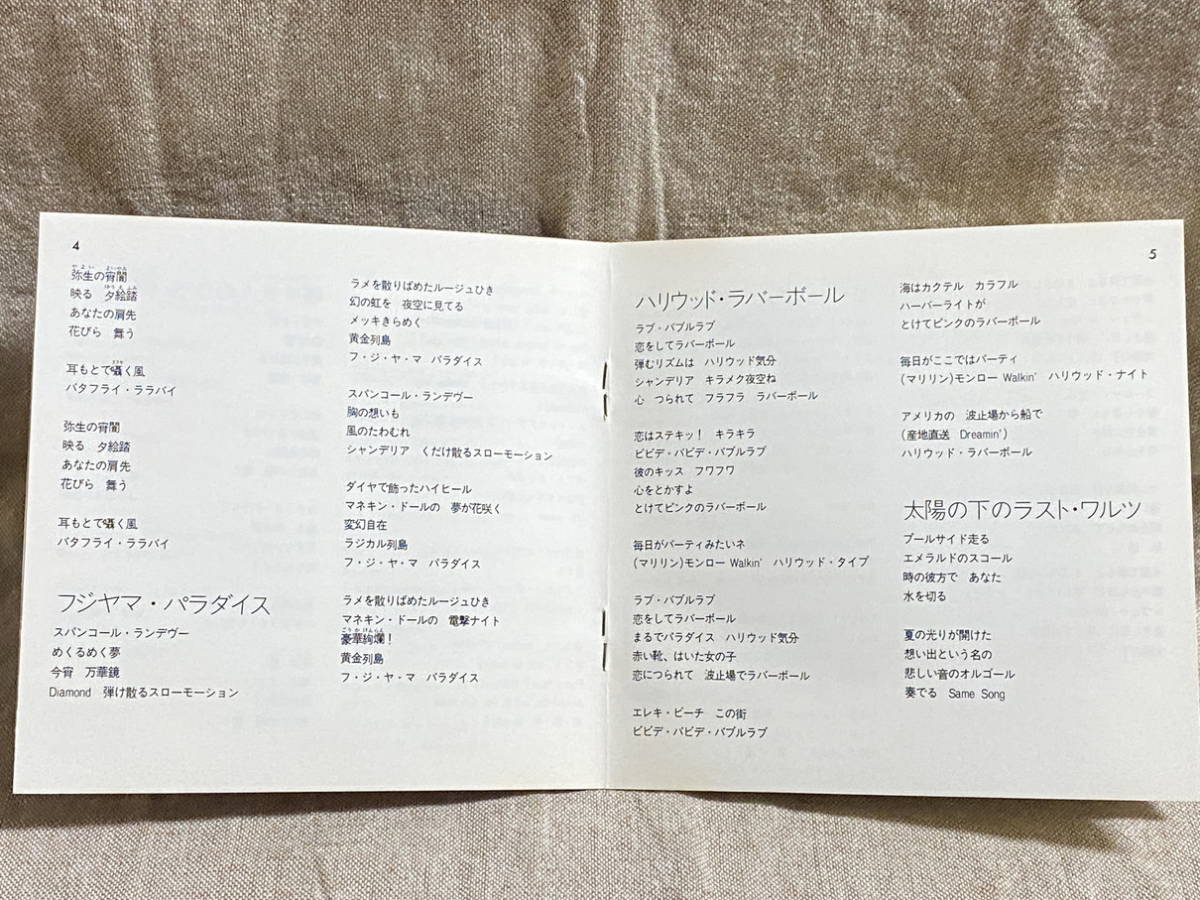 4
弥生の宵闇
映る 夕絵踏
あなたの肩先
花びら 舞う
耳もとで囁く風
バタフライ・ララバイ
弥生の宵闇
映る 夕絵踏
あなたの肩先
花びら 舞う
耳もとで囁く風
バタフライ・ララバイ
フジヤマ・パラダイス
スパンコール・ランデヴー
めくるめく夢
今宵 万華鏡
Diamond 弾け散るスローモーション
ラメを散りばめたルージュひき
幻の虹を 夜空に見てる
メッキきらめく
黄金列島
フ・ジ・ヤ・マ パラダイス
スパンコール・ランデヴー
胸の想いも
風のたわむれ
シャンデリア くだけ散るスローモーション
ダイヤで飾ったハイヒール
マネキン・ドールの 夢が花咲く
変幻自在
ラジカル列島
フ・ジ・ヤ・マ パラダイス
ラメを散りばめたルージュひき
マネキン・ドールの 電撃ナイト
豪華絢爛!
黄金列島
フ・ジ・ヤ・マ パラダイス
5
ハリウッド・ラバーボール
ラブ・バブルラブ
恋をしてラバーボール
弾むリズムは ハリウッド気分
シャンデリア キラメク夜空ね
心 つられて フラフラ ラバーボール
恋はステキッ! キラキラ
ビビデ・バビデ・バブルラブ
彼のキッス フワフワ
心をとかすよ
とけてピンクのラバーボール
毎日がパーティみたいネ
(マリリン)モンロー Walkin' ハリウッド・タイプ
ラブ・バブルラブ
恋をしてラバーボール
まるでパラダイス ハリウッド気分
赤い靴、はいた女の子
恋につられて 波止場でラバーボール
エレキ・ビーチ この街
ビビデ・バビデ・バブルラブ
海はカクテル カラフル
ハーバーライトが
とけてピンクのラバーボール
毎日がここではパーティ
(マリリン)モンロー Walkin' ハリウッド・ナイト
アメリカの 波止場から船で
(産地直送 Dreamin')
ハリウッド・ラバーボール
太陽の下のラスト・ワルツ
プールサイド走る
エメラルドのスコール
時の彼方で あなた
水を切る
夏の光りが開けた
想い出という名の
悲しい音のオルゴール
奏でる Same Song